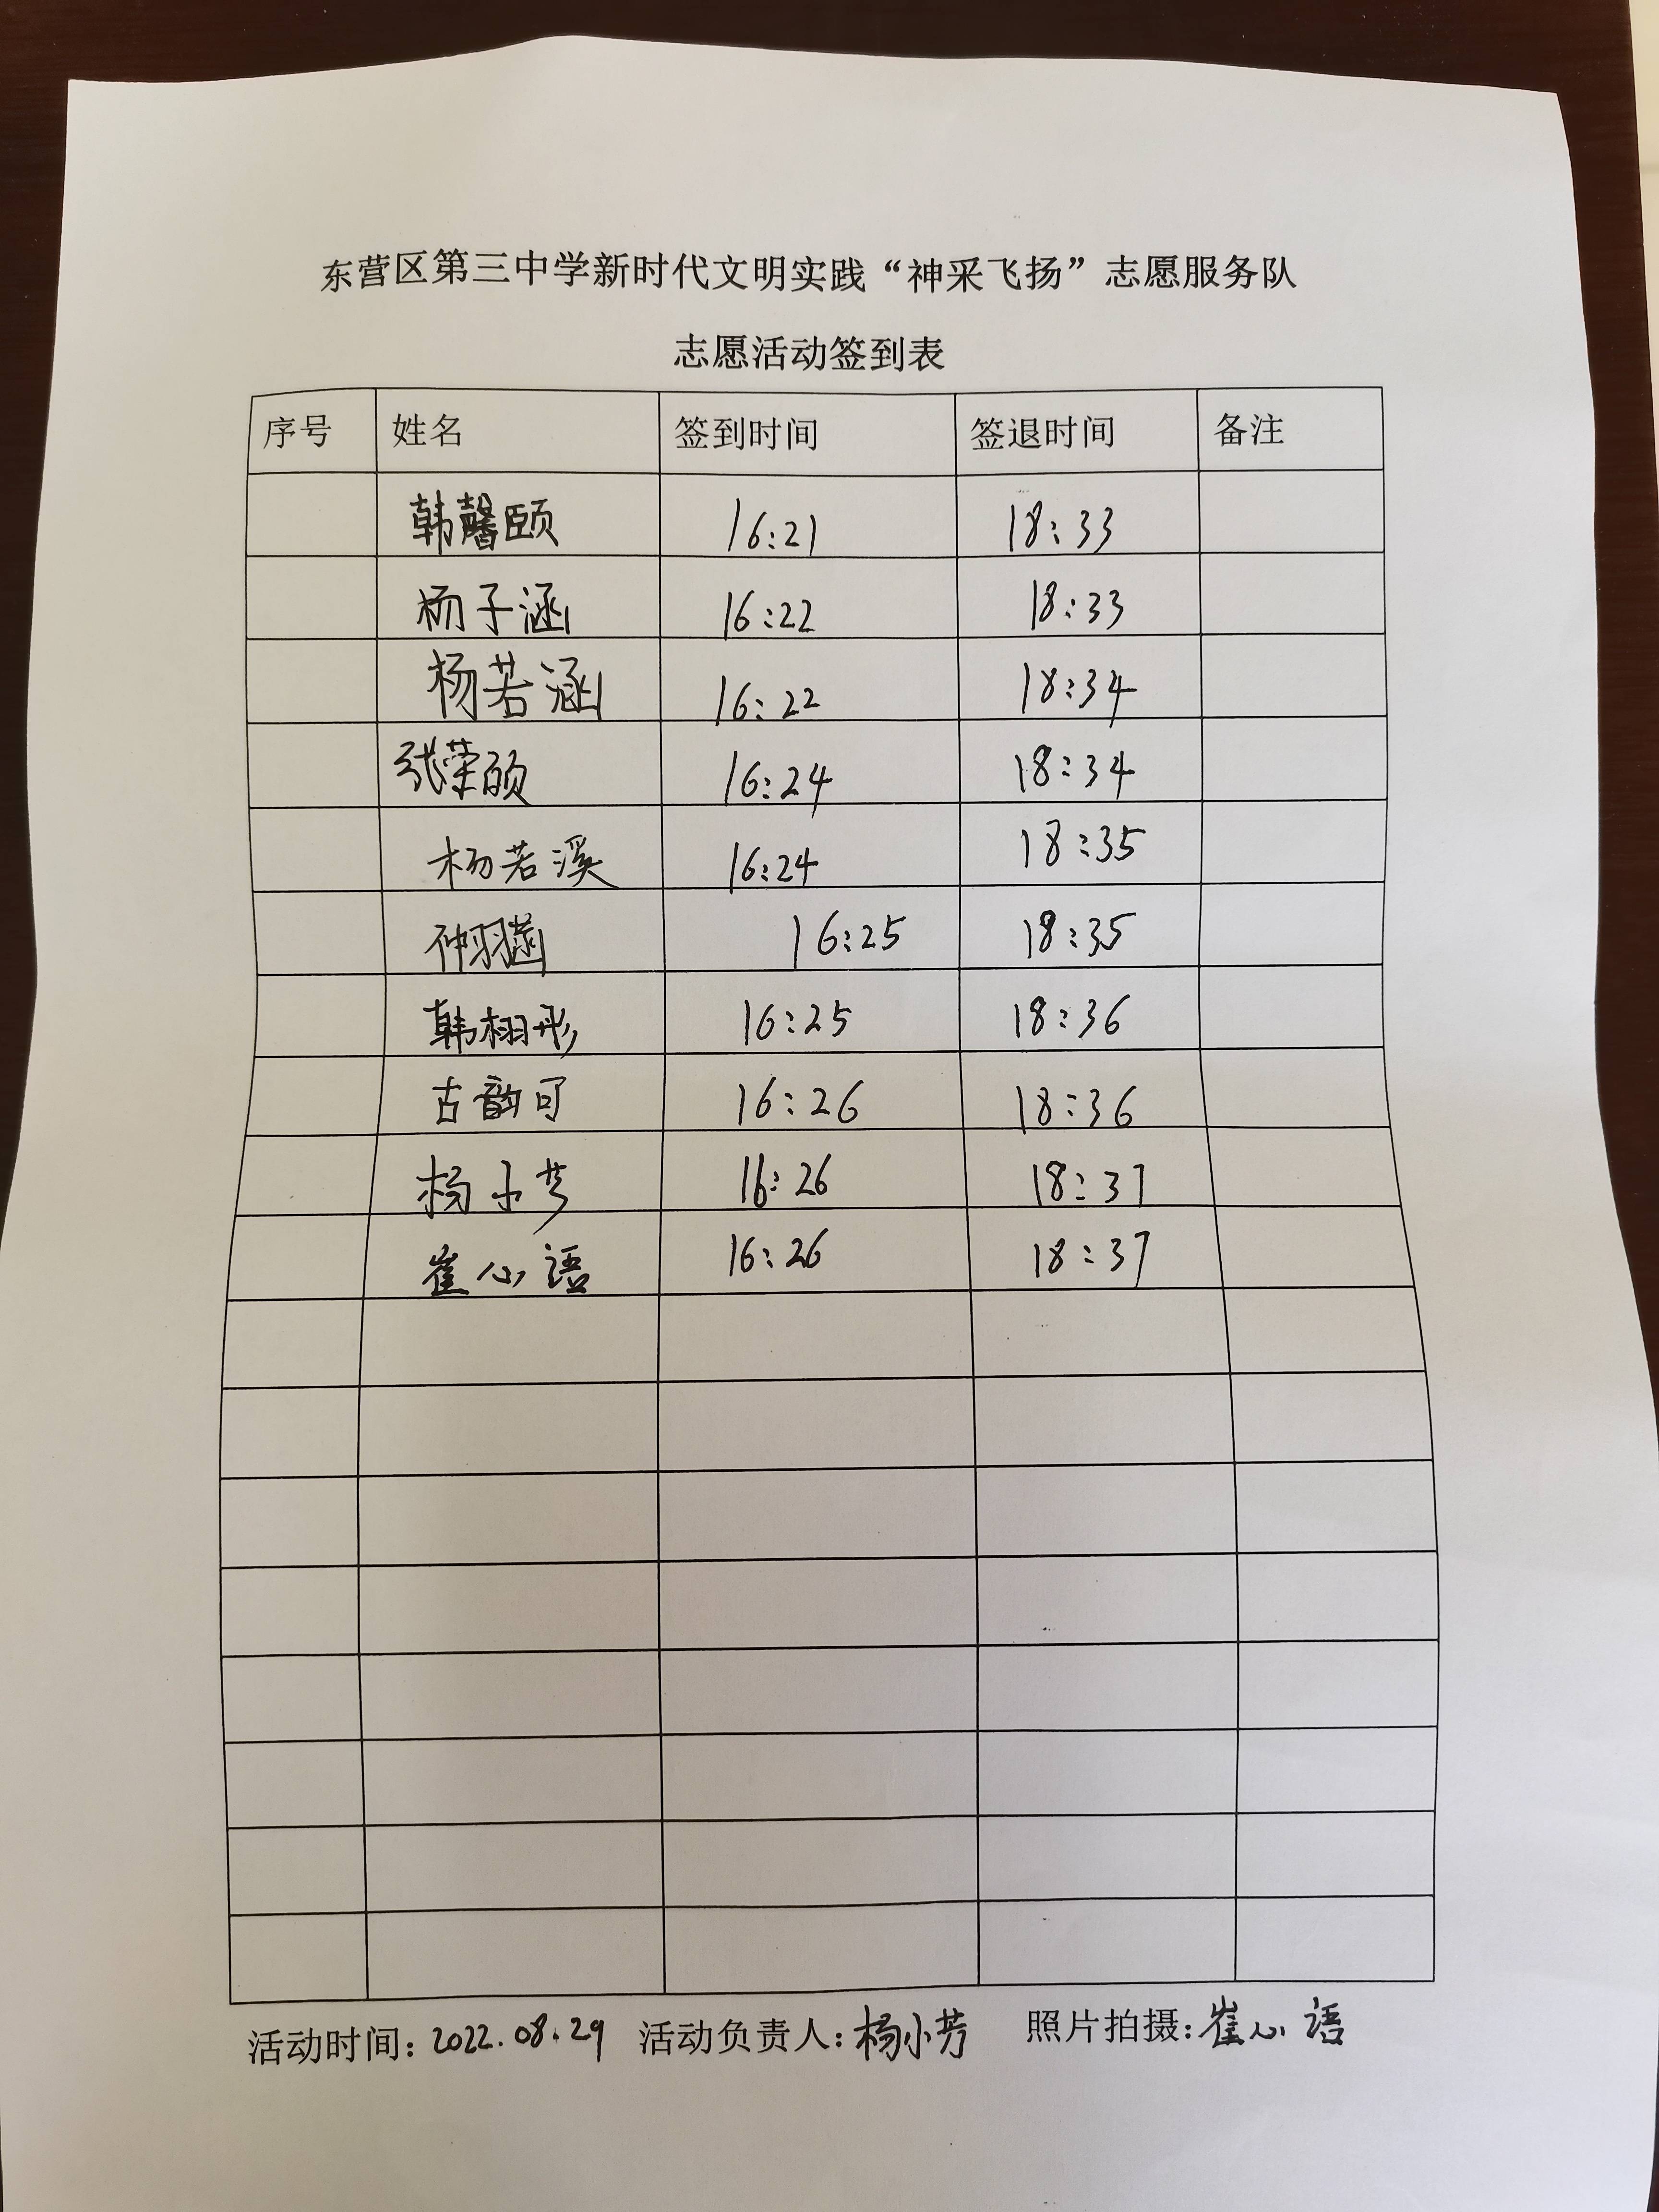 东营区第三中学新时代文明实践“神采飞扬”志愿服务队
志愿活动签到表
序号 姓名 签到时间 签退时间 备注
韩馨颐 16:21 18:33
杨子涵 16:22 18:33
杨若涵 16:22 18:34
张荣硕 16:24 18:34
杨若溪 16:24 18:35
仲羽菡 16:25 18:35
韩栩彤 16:25 18:36
古韵可 16:26 18:36
杨小芳 16:26 18:37
崔心语 16:26 18:37
活动时间: 2022.08.29 活动负责人: 杨小芳 照片拍摄: 崔心语